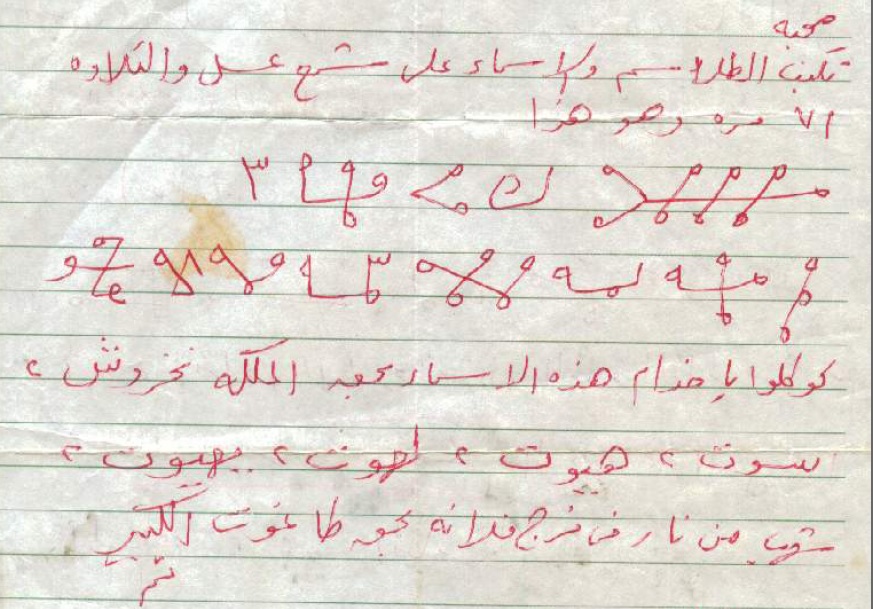 محبه
تكتب الطلاسم والاسماء على شمع عسل والتلاوه
٧١ مره وهو هذا
٣
كوكلوا يا خدام هذه الاسماء بحق الملكه نخروش ٢
٢ هيوت ٢ لهوت ٢ يهيوت ٢
من نار فى فرج فلانه بحق طاغوت الكبير
تم